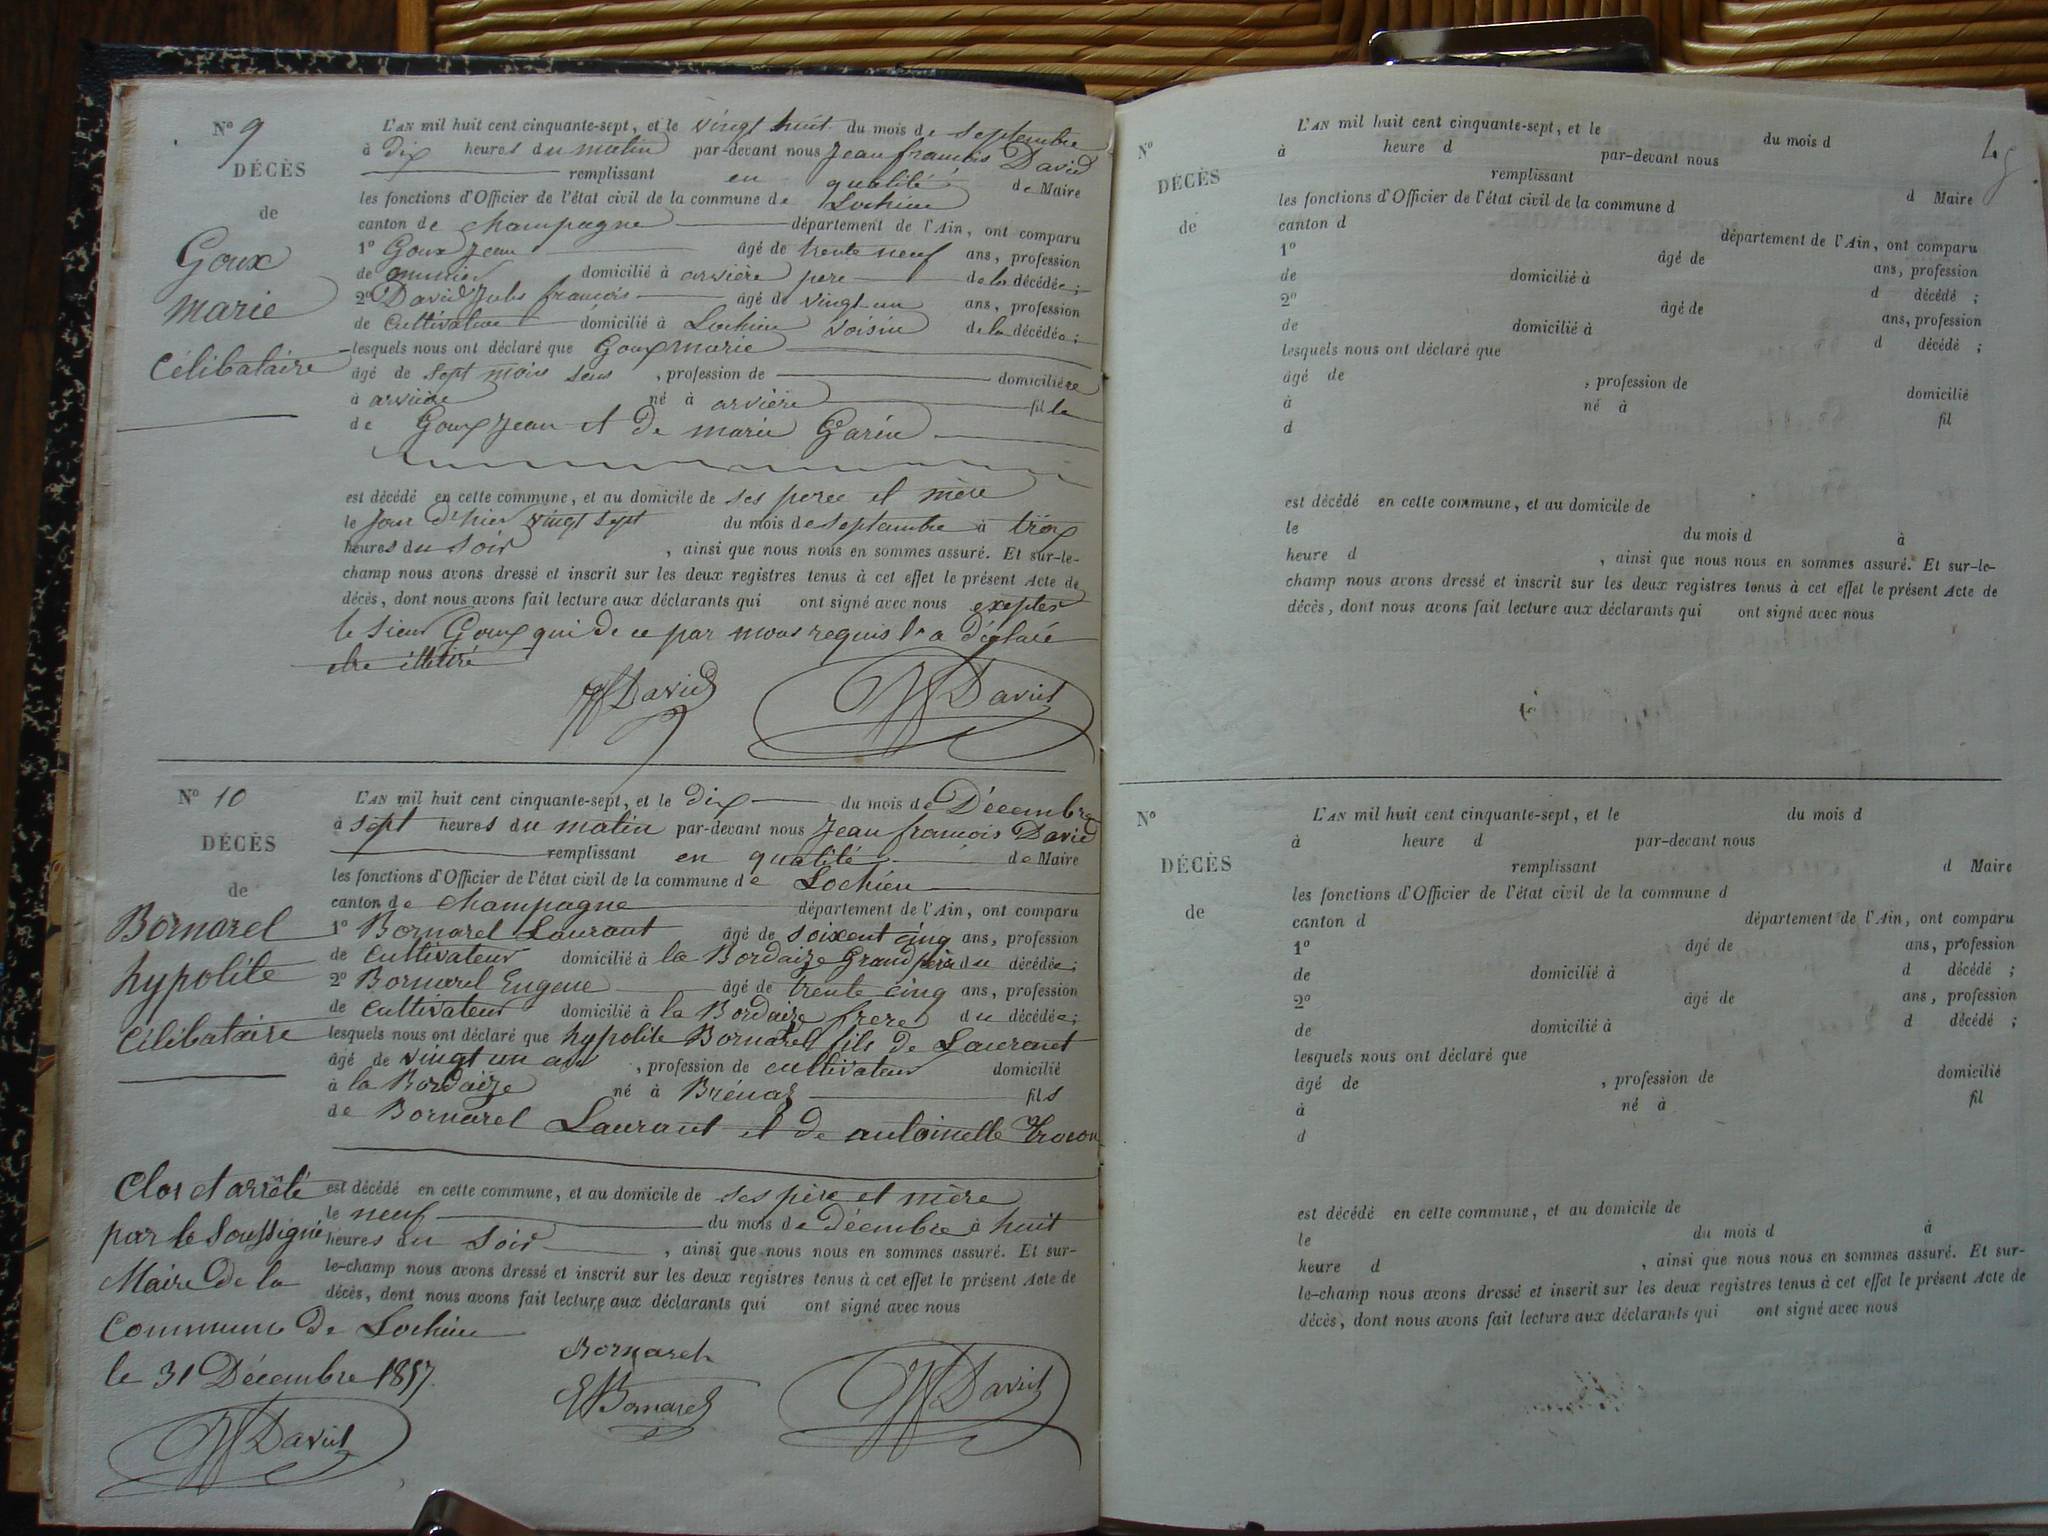 N° 9
DÉCÈS
de
Goux
marie
Célibataire
L'AN mil huit cent cinquante-sept, et le vingt huit du mois de septembre
à dix heures du matin par-devant nous Jean francois David
remplissant en qualité de Maire
les fonctions d'Officier de l'état civil de la commune de Lochieu
canton de Champagne département de l'Ain, ont comparu
1° Goux Jean âgé de trente neuf ans, profession
de domicilié à arvière pere de la décédée;
2° David Jules francois âgé de vingt un ans, profession
de Cultivateur domicilié à Lochieu voisin de la décédée;
lesquels nous ont déclaré que Goux marie
âgé de sept mois , profession de domiciliée
à arvière né à arvière fille
de Goux Jean et de marie Garin
est décédé en cette commune, et au domicile de ses peree et mère
le jour d'hier vingt sept du mois de septembre à troix
heures du soir , ainsi que nous nous en sommes assuré. Et sur-le-
champ nous avons dressé et inscrit sur les deux registres tenus à cet effet le présent Acte de
décès, dont nous avons fait lecture aux déclarants qui ont signé avec nous exepter
le sieur Goux qui de ce par nous requis l'a déclaré
etre illétiré
David
David
N° 10
DÉCÈS
de
Bornarel
hypolite
Célibataire
L'AN mil huit cent cinquante-sept, et le dix du mois de Décembre
à sept heures du matin par-devant nous Jean francois David
remplissant en qualité de Maire
les fonctions d'Officier de l'état civil de la commune de Lochieu
canton de Champagne département de l'Ain, ont comparu
1° Bornarel Laurant âgé de soixent cinq ans, profession
de cultivateur domicilié à la Bordaize Grand père du décédée;
2° Bornarel Eugene âgé de trente cinq ans, profession
de cultivateur domicilié à la Bordaize frere du décédée;
lesquels nous ont déclaré que hypolite Bornarel fils de Laurant
âgé de vingt un ans , profession de cultivateur domicilié
à la Bordaize né à Brénaz fils
de Bornarel Laurant et de antoinette
est décédé en cette commune, et au domicile de ses père et mère
le neuf du mois de décembre à huit
heures du soir , ainsi que nous nous en sommes assuré. Et sur-
le-champ nous avons dressé et inscrit sur les deux registres tenus à cet effet le présent Acte de
décès, dont nous avons fait lecture aux déclarants qui ont signé avec nous
Clos et arrêté
par le Soussigné
Maire de la
Commune de Lochieu
le 31 Décembre 1857.
David
Bornarel
Bornarel
David
N°
DÉCÈS
de
L'AN mil huit cent cinquante-sept, et le du mois d
à heure d par-devant nous
remplissant d Maire
les fonctions d'Officier de l'état civil de la commune d
canton d département de l'Ain, ont comparu
1° âgé de ans, profession
de domicilié à d décédé ;
2° âgé de ans, profession
de domicilié à d décédé ;
lesquels nous ont déclaré que
âgé de , profession de domicilié
à né à fil
d
est décédé en cette commune, et au domicile de
le du mois d à
heure d , ainsi que nous nous en sommes assuré. Et sur-le-
champ nous avons dressé et inscrit sur les deux registres tenus à cet effet le présent Acte de
décès, dont nous avons fait lecture aux déclarants qui ont signé avec nous
N°
DÉCÈS
de
L'AN mil huit cent cinquante-sept, et le du mois d
à heure d par-devant nous
remplissant d Maire
les fonctions d'Officier de l'état civil de la commune d
canton d département de l'Ain, ont comparu
1° âgé de ans, profession
de domicilié à d décédé ;
2° âgé de ans, profession
de domicilié à d décédé ;
lesquels nous ont déclaré que
âgé de , profession de domicilié
à né à fil
d
est décédé en cette commune, et au domicile de
le du mois d à
heure d , ainsi que nous nous en sommes assuré. Et sur-
le-champ nous avons dressé et inscrit sur les deux registres tenus à cet effet le présent Acte de
décès, dont nous avons fait lecture aux déclarants qui ont signé avec nous